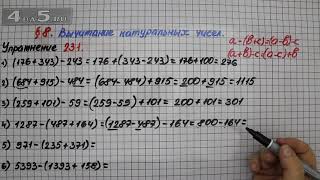 5
§ 8. Вычитание натуральных чисел.
Упражнение 231.
a-(b+c)=(a-b)-c
(a+b)-c=(a-c)+b
1) (176+343)-243=176+(343-243)=176+100=276
2) (684+915)-484=(684-484)+915=200+915=1115
3) (259+101)-59=(259-59)+101=200+101=301
4) 1287-(487+164)=(1287-487)-164=800-164=
5) 971-(235+371)=
6) 5393-(1393+158)=